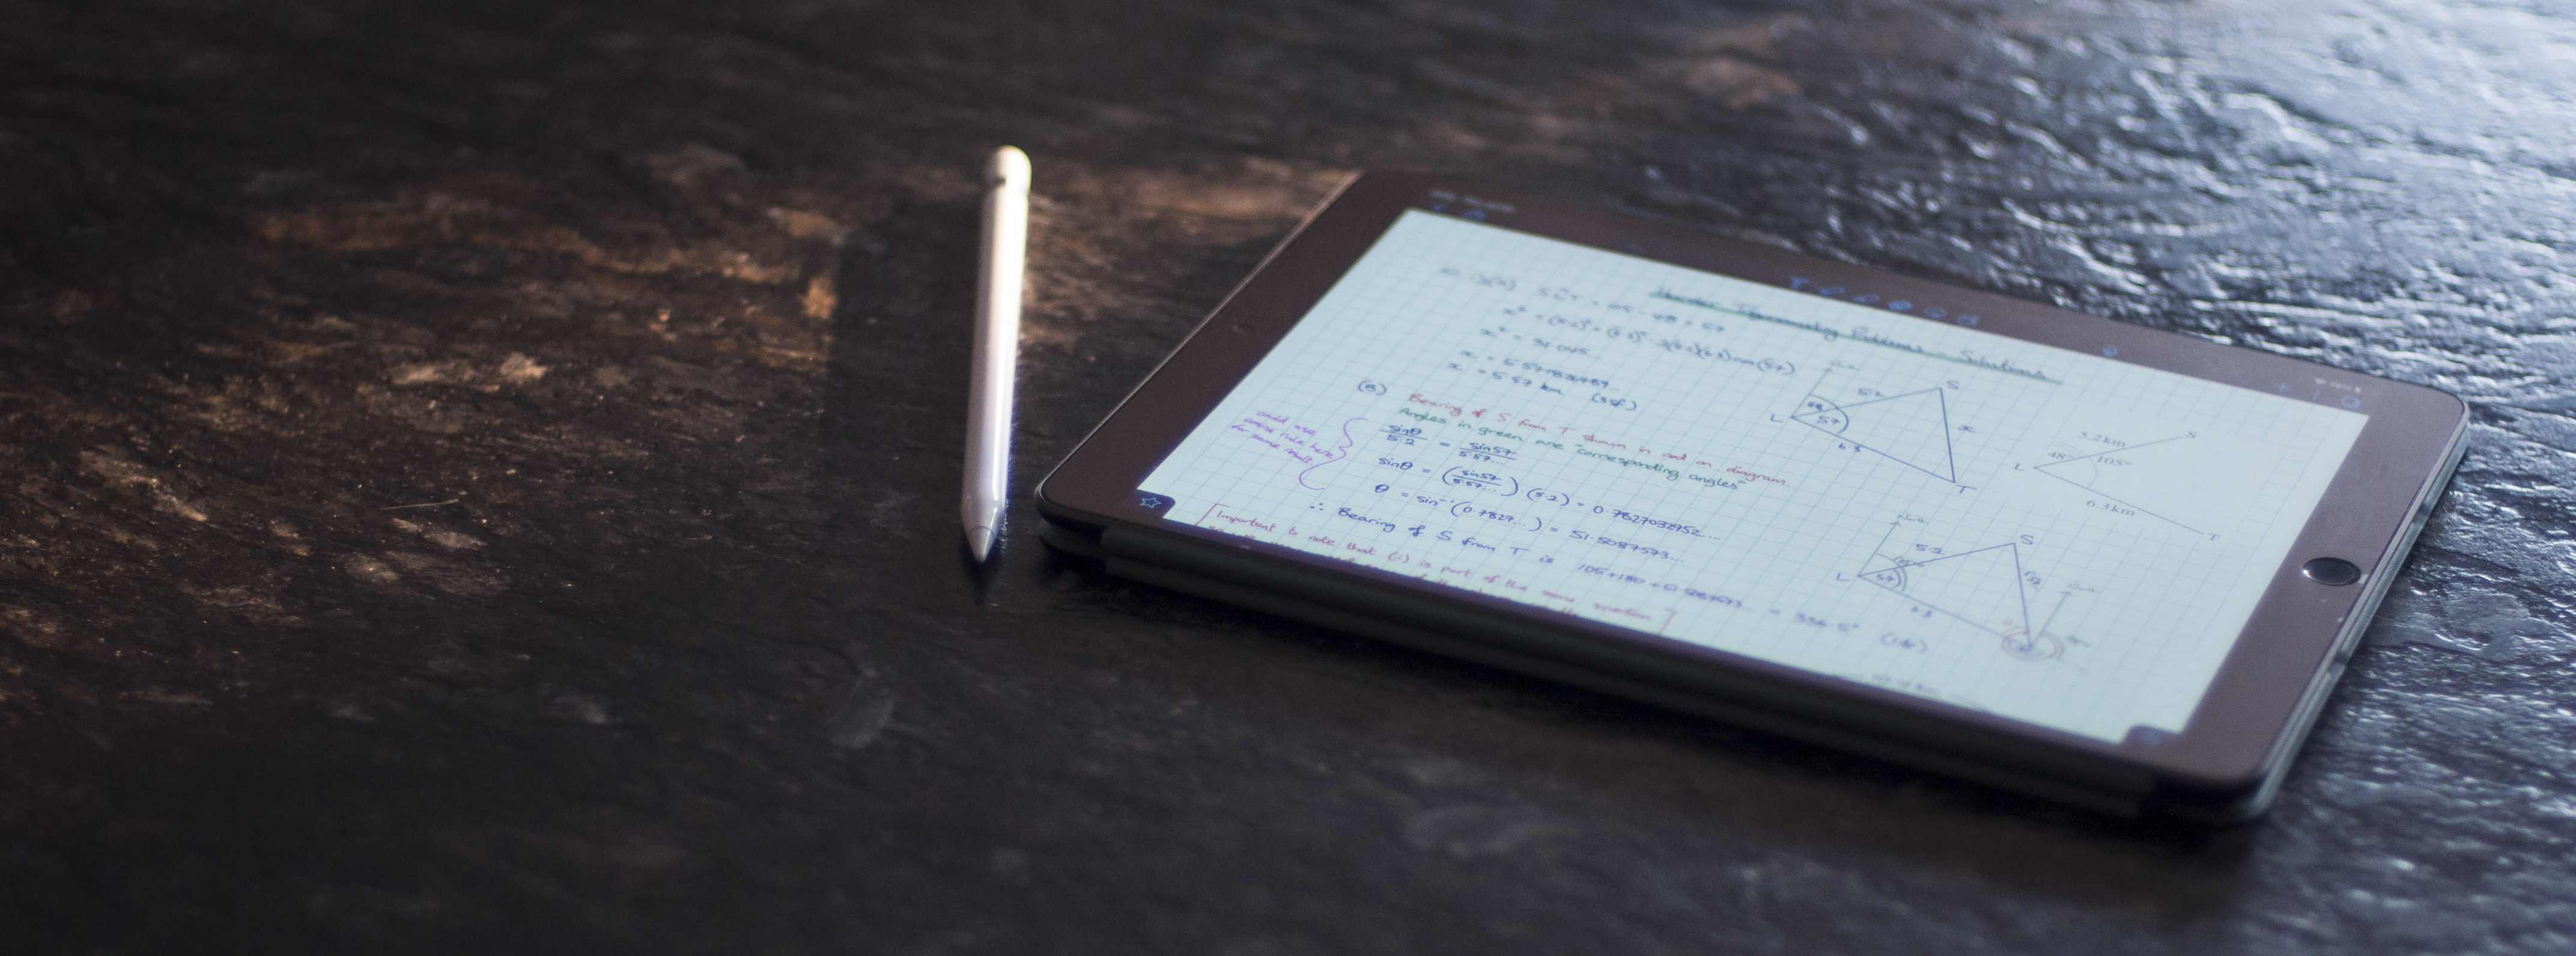 Harder Trigonometry Problems - Solutions
= 105 - 48 = 57
x² = (5.2)² + (6.3)² - 2(5.2)(6.3)cos(57)
x² = 31.045...
x = 5.571826489...
x = 5.57 km (3sf)
(B) Bearing of S from T shown in red on diagram.
Angles in green are "corresponding angles"
could use
cosine rule here
for same result.
sinθ/5.2 = sin57/5.57...
sinθ = (sin57/5.57...) (5.2) = 0.7827032952...
θ = sin⁻¹ (0.7827...) = 51.5087573...
∴ Bearing of S from T is 105+180+51.5087573... = 336.5°
Important to note that (ii) is part of the same question
North
5.2
S
L
48
57
x
6.3
T
5.2km
S
48°
105°
L
6.3km
T
North
5.2
S
L
57
6.3